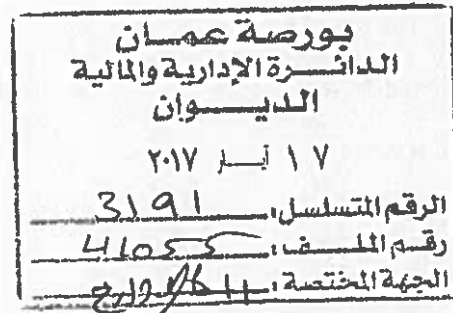 بورصة عمان
الدائرة الإدارية والمالية
الديوان
١٧ أيار ٢٠١٧
الرقم المتسلسل: 3191
رقم الملف: 41055
الجهة المختصة: